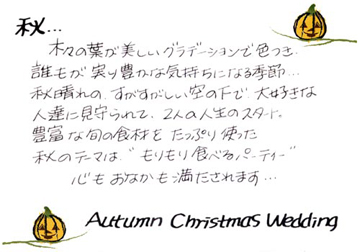 秋...
木々の葉が美しいグラデーションで色づき、
誰もが実り豊かな気持ちになる季節...
秋晴れの、すがすがしい空の下で、大好きな
人達に見守られて、2人の人生のスタート。
豊富な旬の食材をたっぷり使った
秋のテーマは、“もりもり食べるパーティー”
心もおなかも満たされます...
Autumn Christmas Wedding